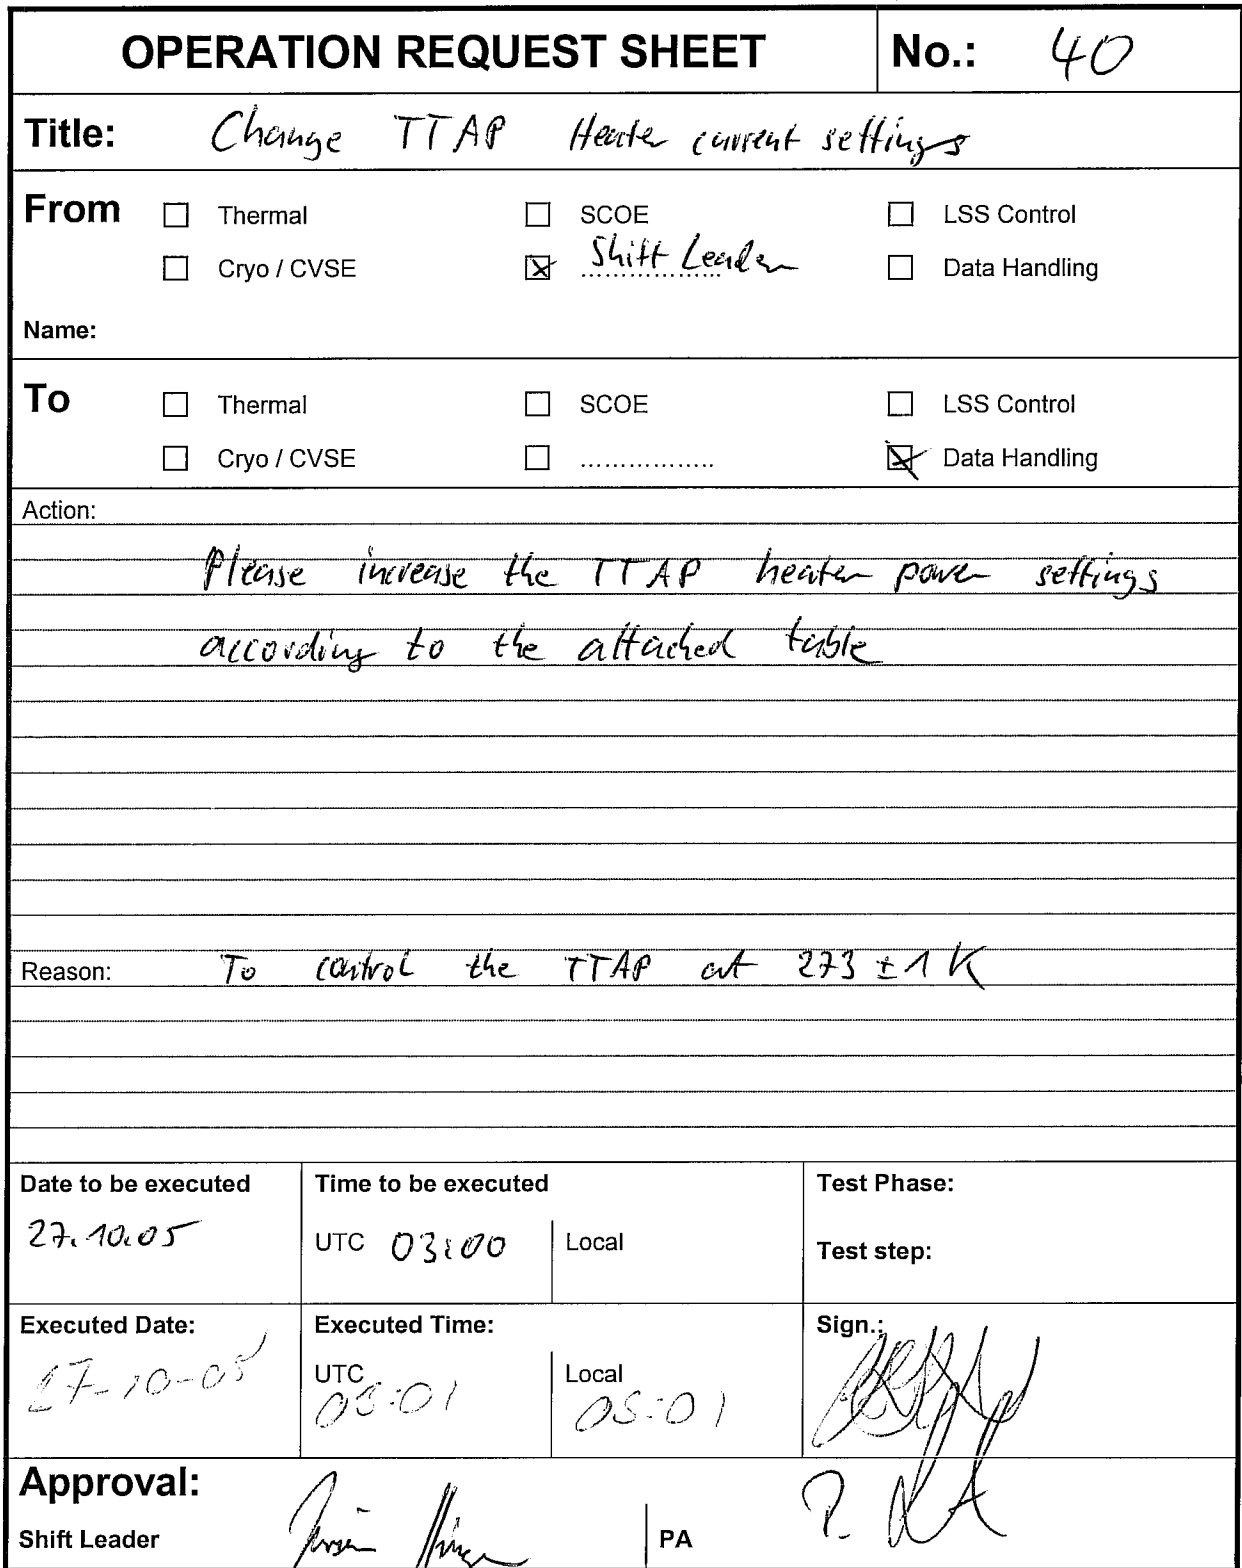 OPERATION REQUEST SHEET No.: 40
Title: Change TTAP Heater current settings
From Thermal SCOE LSS Control
Cryo / CVSE Shift Leader Data Handling
Name:
To Thermal SCOE LSS Control
Cryo / CVSE ................ Data Handling
Action:
Please increase the TTAP heater power settings
according to the attached table
Reason: To control the TTAP at 273 ± 1 K
Date to be executed Time to be executed Test Phase:
27.10.05 UTC 03:00 Local Test step:
Executed Date: Executed Time: Sign.:
27-10-05 UTC Local 05:01
Approval:
Shift Leader PA